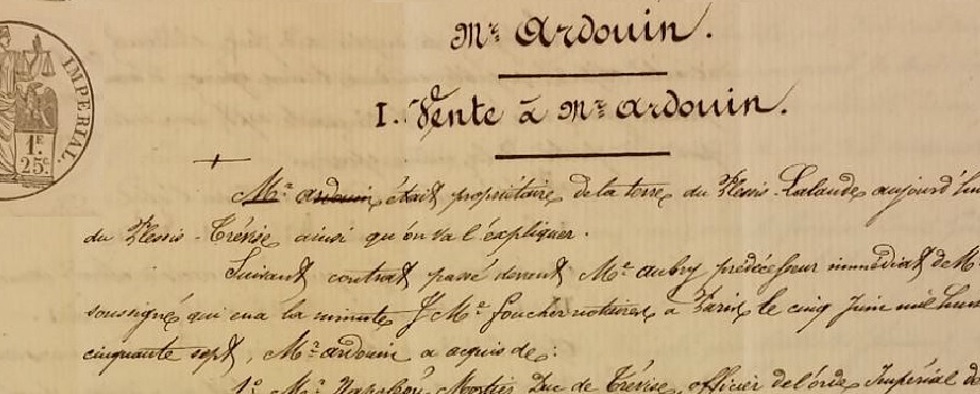 Mr Ardouin.
I. Vente à Mr Ardouin.
IMPERIAL.
1F.
25c.
Mr ardouin était propriétaire de la terre du Plessis-Lalande, aujourd'hui
du Plessis-Trévise ainsi qu'on va l'expliquer.
Suivant contrat passé devant Me aubry prédécesseur immédiat de Me
soussigné qui en a la minute & Me foucher notaires à Paris le cinq Juin mil huit
cinquante sept, Mr ardouin a acquis de:
1o Mr Napoléon Mortier Duc de Trévise, officier de l'ordre Impérial de